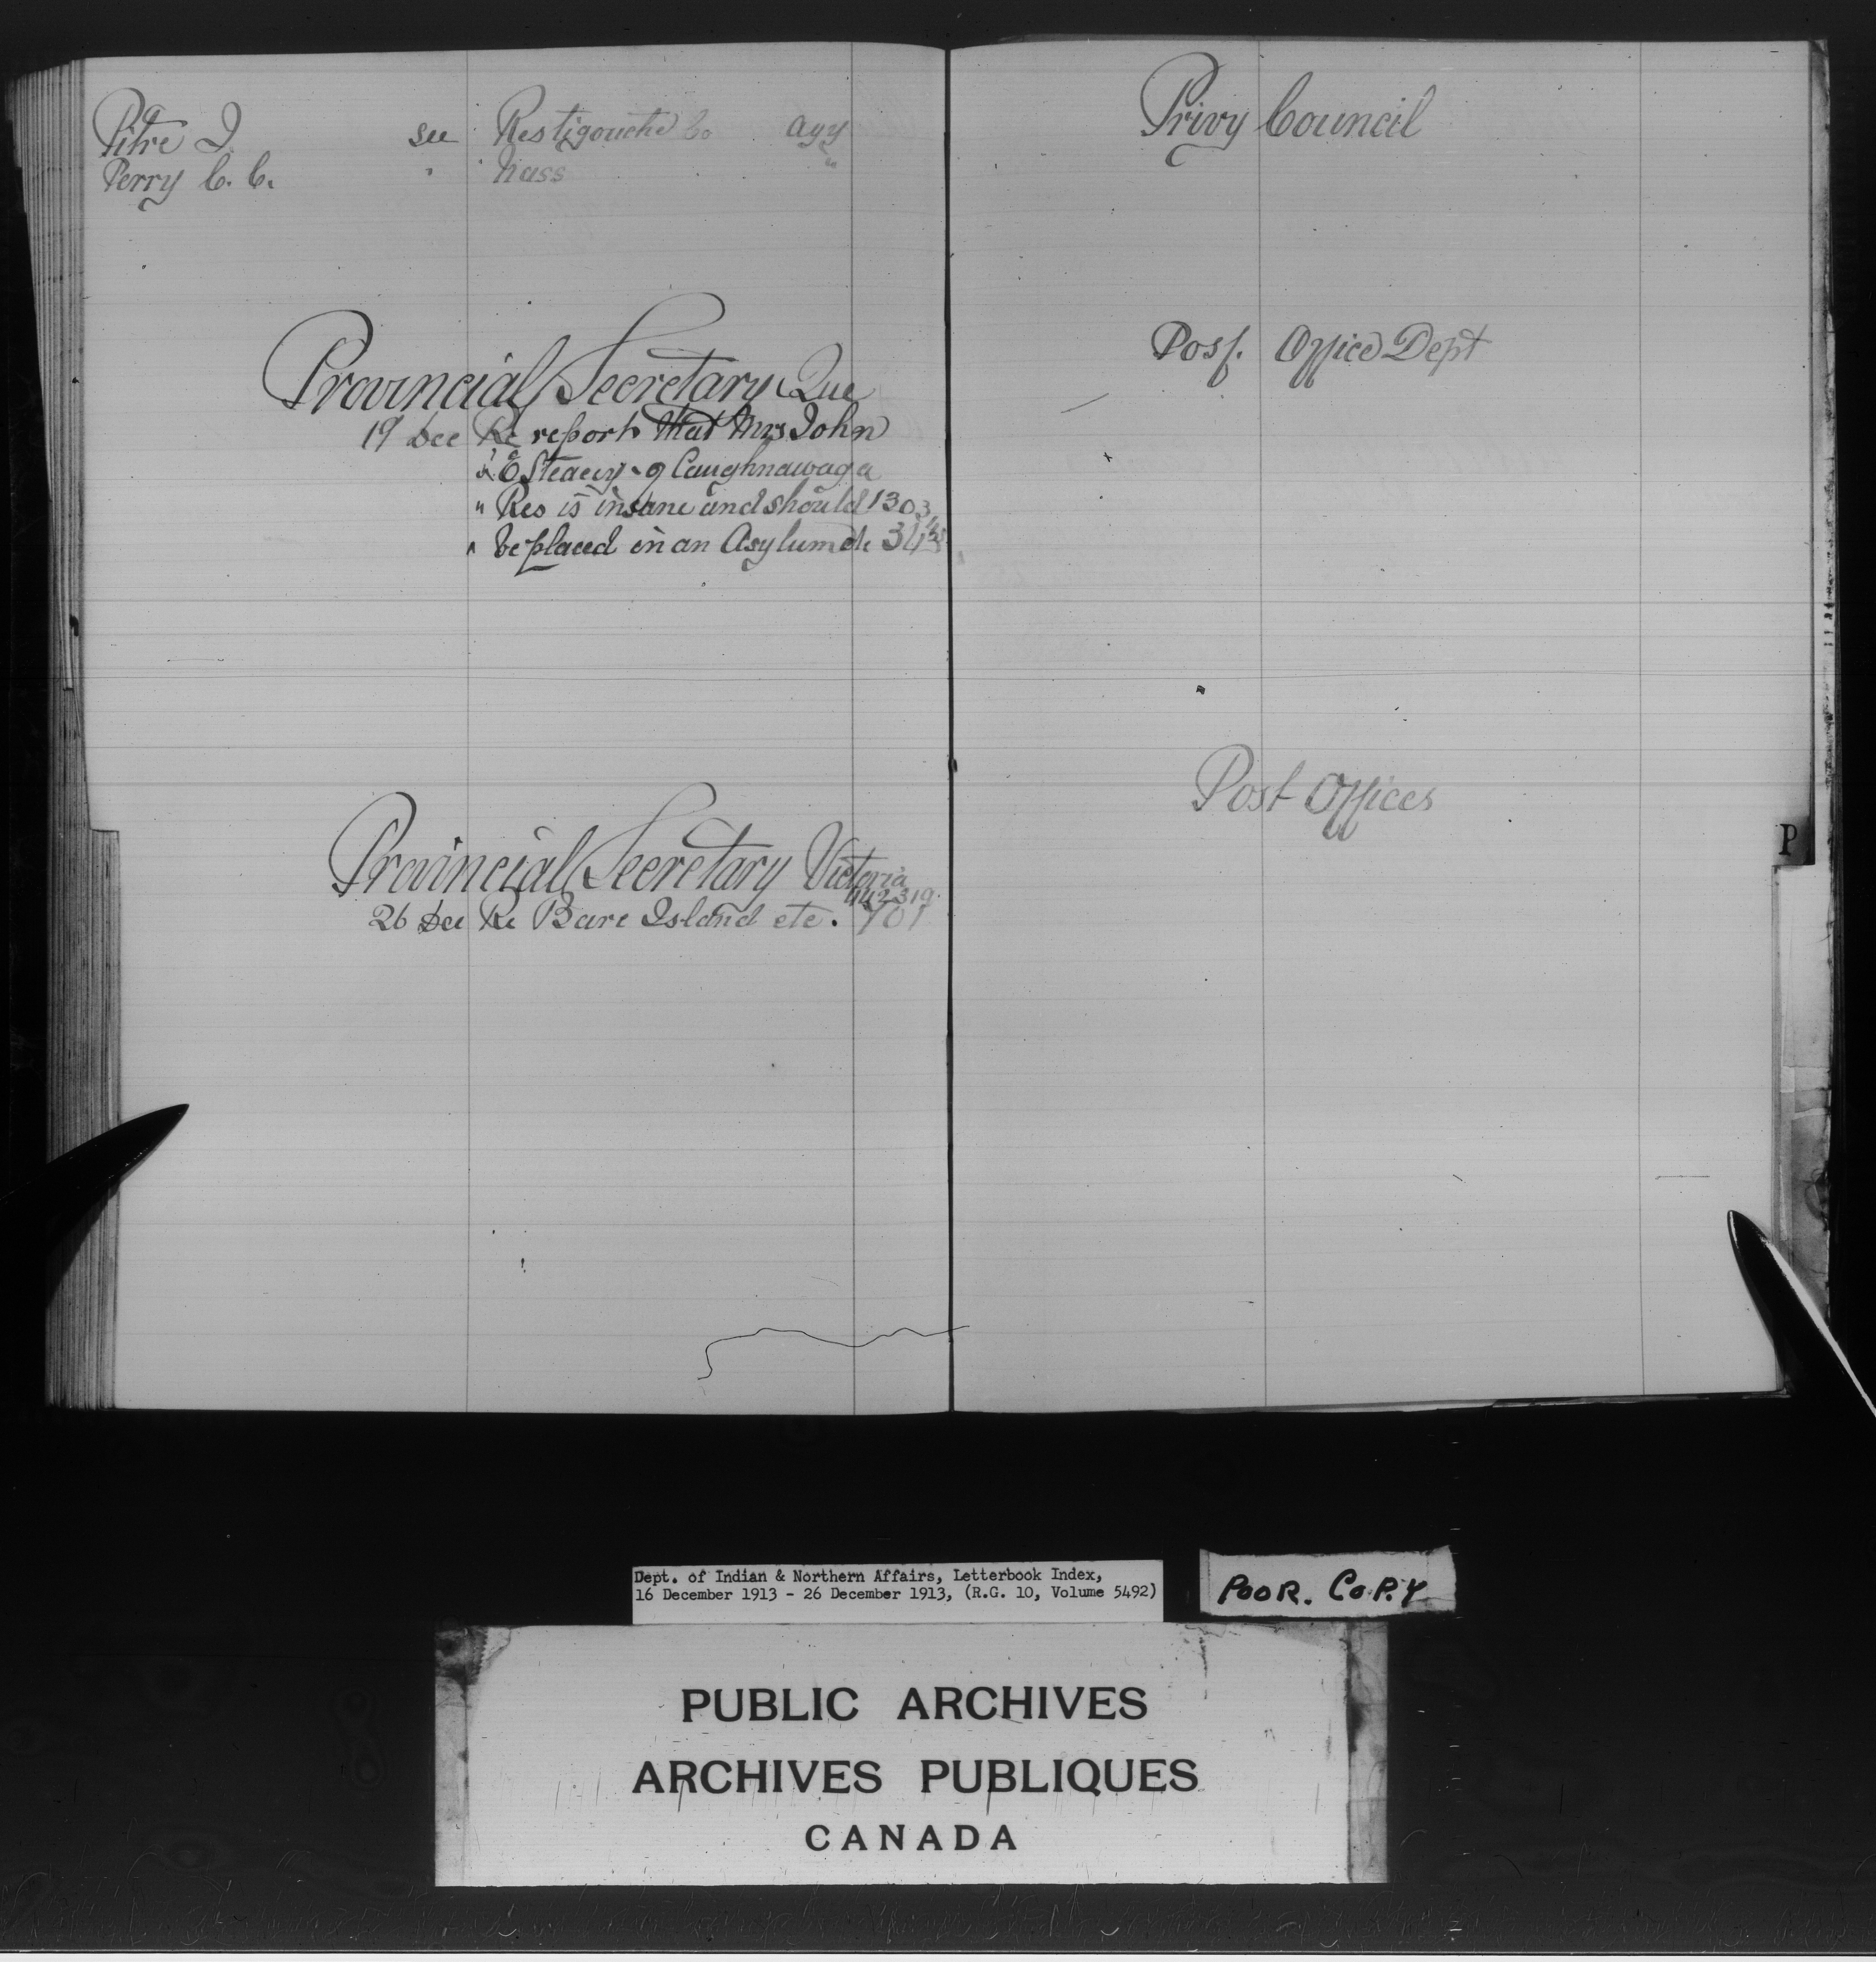 Pitre J. see Restigouche Co Agy
Perry C. C. " Nass "
Provincial Secretary Que
19 Dec Re report that Mrs John
Steacy of Caughnawaga
" Res is insane and should 1303
" be placed in an Asylum etc
Provincial Secretary Victoria
442319
26 Dec Re Bare Island etc. 701
Privy Council
Post Office Dept
Post Offices
P
Dept. of Indian & Northern Affairs, Letterbook Index,
16 December 1913 - 26 December 1913, (R.G. 10, Volume 5492)
POOR. COPY
PUBLIC ARCHIVES
ARCHIVES PUBLIQUES
CANADA